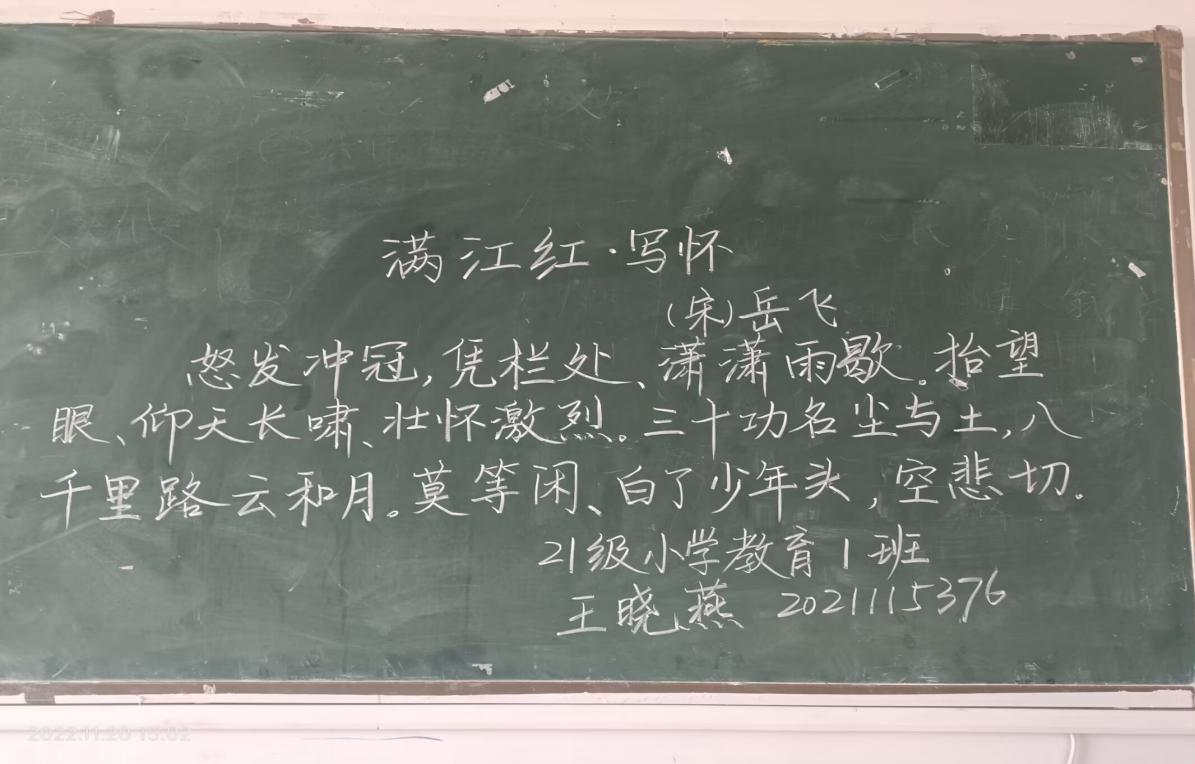 满江红·写怀
(宋)岳飞
怒发冲冠,凭栏处、潇潇雨歇。抬望
眼、仰天长啸、壮怀激烈。三十功名尘与土,八
千里路云和月。莫等闲、白了少年头,空悲切。
21级小学教育1班
王晓燕 2021115376
2022.11.20 15:02